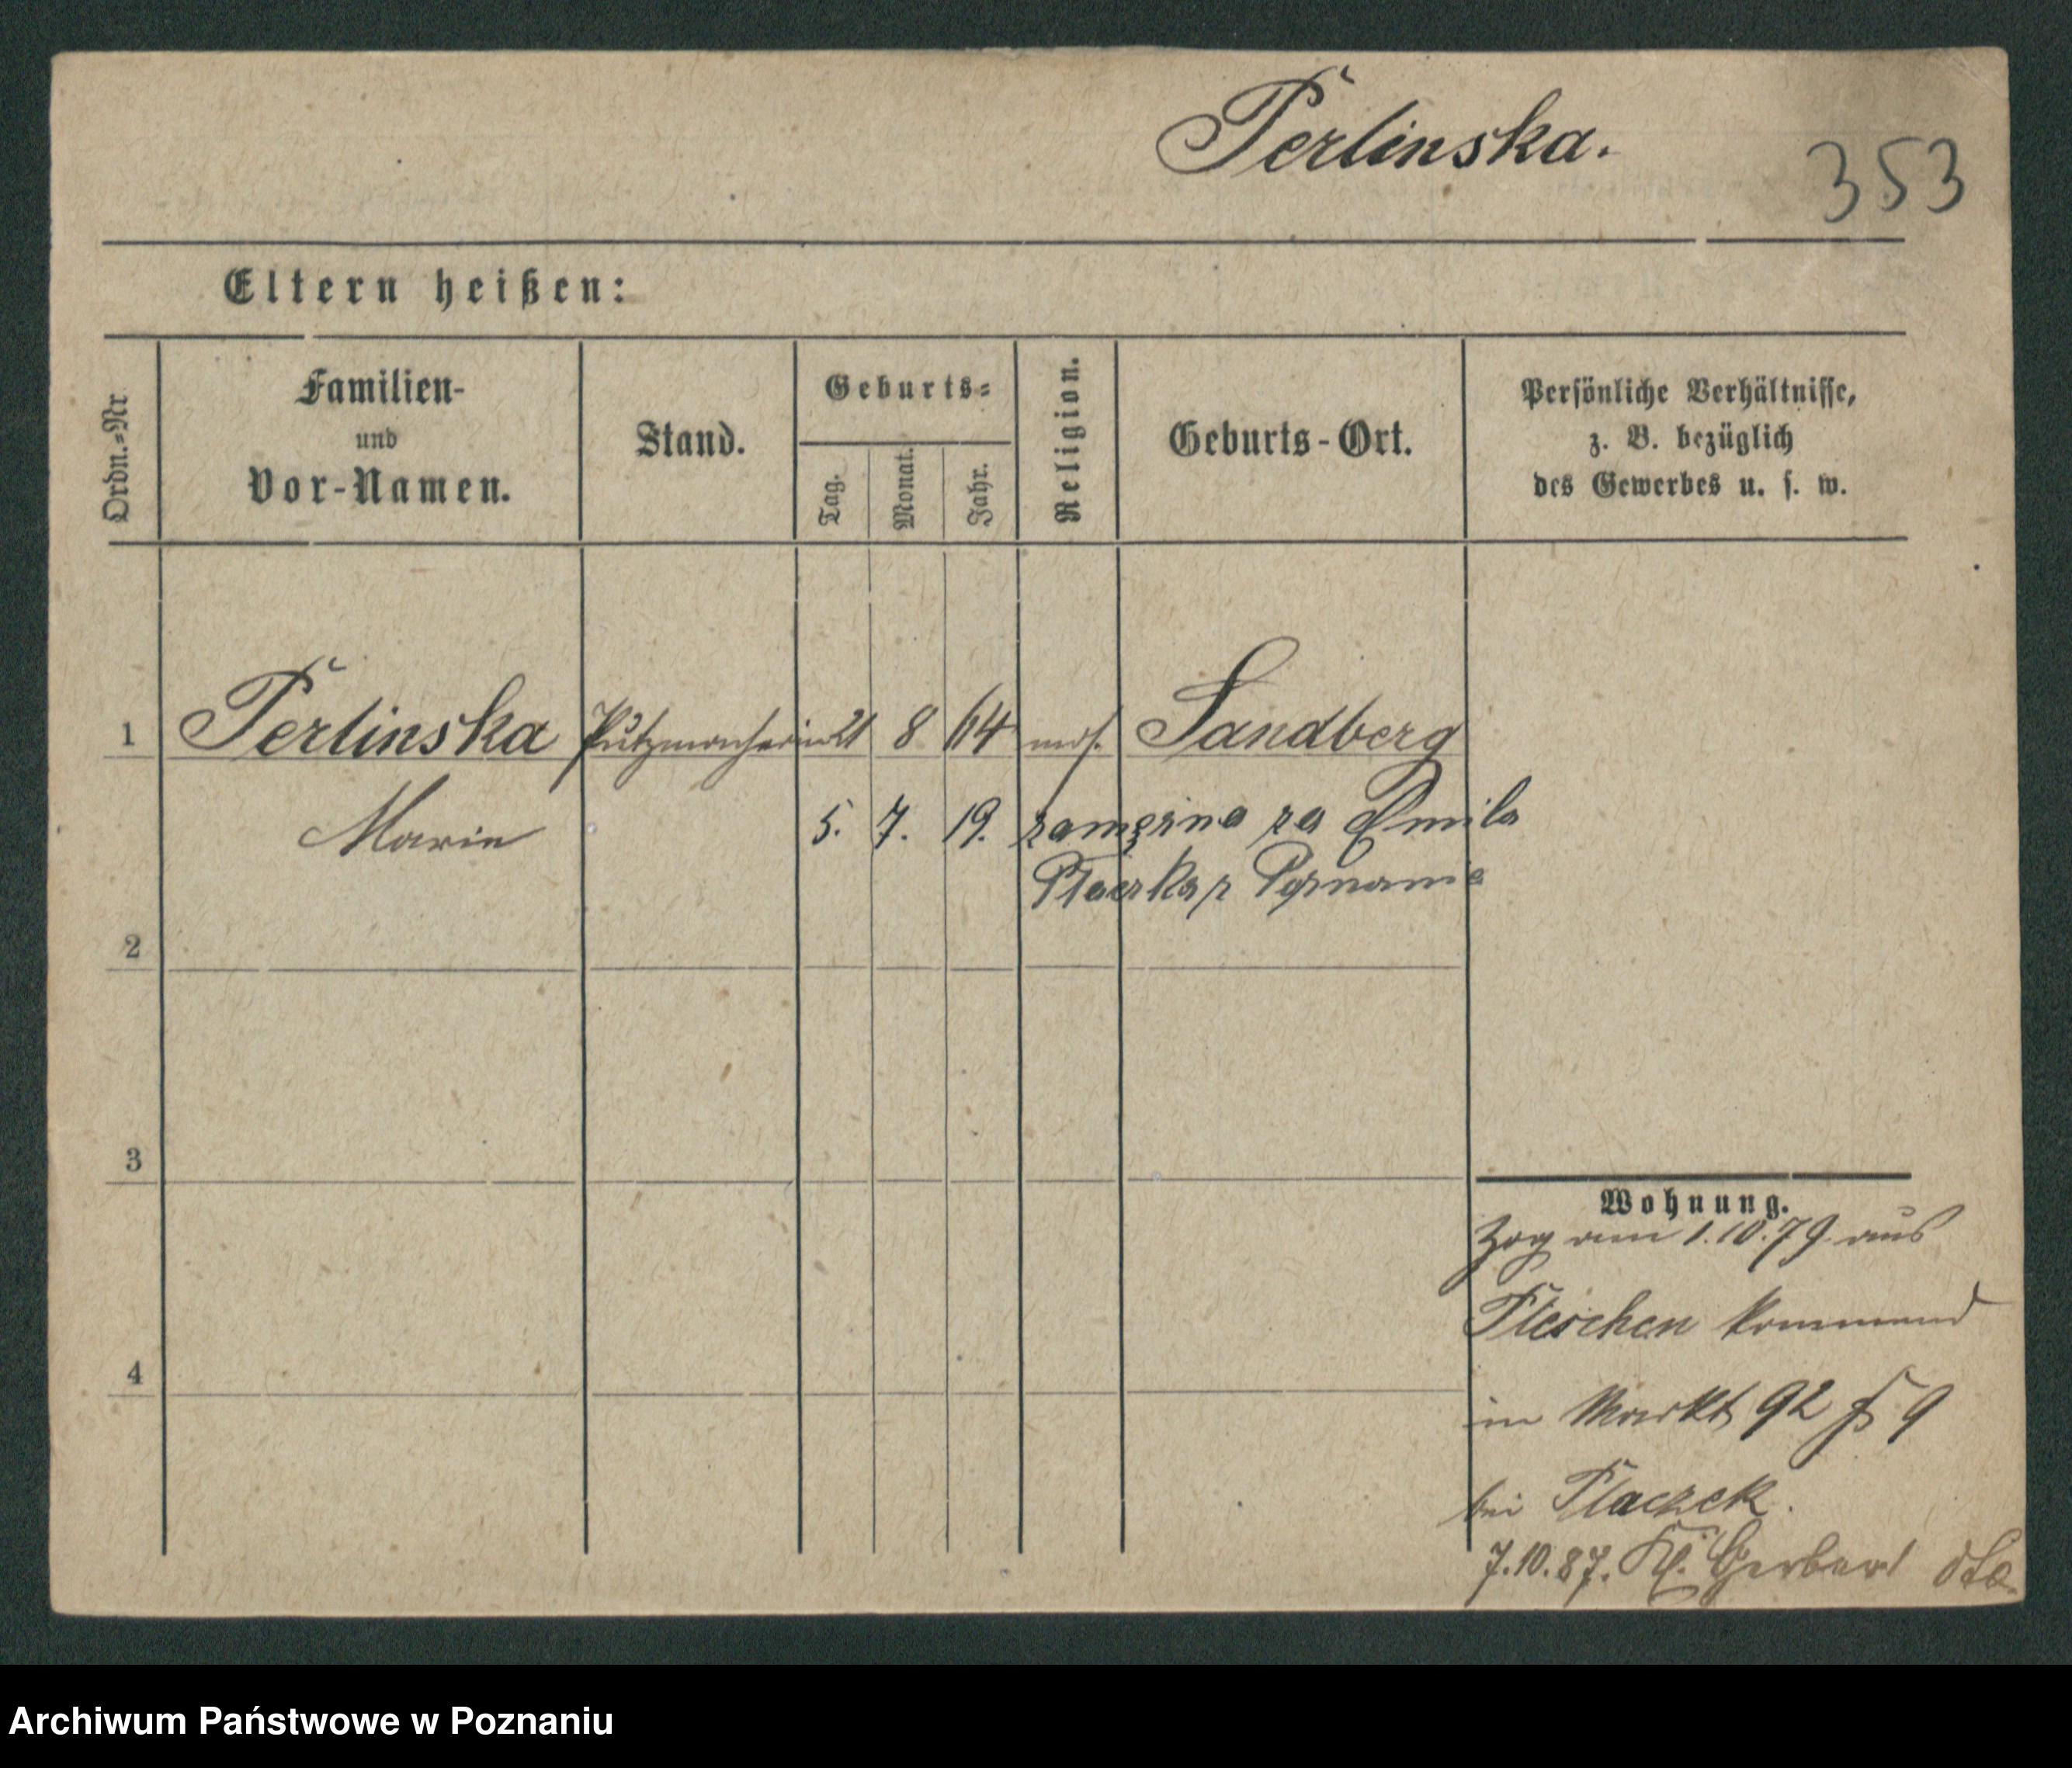 Perlinska.
353
Eltern heißen:
Ordn.=Nr
Familien-
und
Vor-Namen.
Stand.
Geburts=
Tag.
Monat.
Jahr.
Religion.
Geburts-Ort.
Persönliche Verhältnisse,
z. B. bezüglich
des Gewerbes u. s. w.
1 Perlinska Putzmacherin 21 8 64 mos. Sandberg
Marie 5. 7. 19. zamężna za Emila
Placzka z Poznania
2
3
4
Wohnung.
Zog am 1.10.79 aus
Pleschen kommend
im Markt 92 9
bei Placzek.
7.10.87. Kl. Gerberst dto.
Archiwum Państwowe w Poznaniu